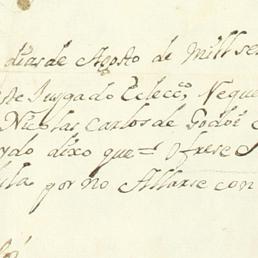 dias de Agosto de Mill se
te Juzgado Eclecc.o Neque
Nicolas Carlos de Godoi
do dixo que = Ofrese
por no Allarse con